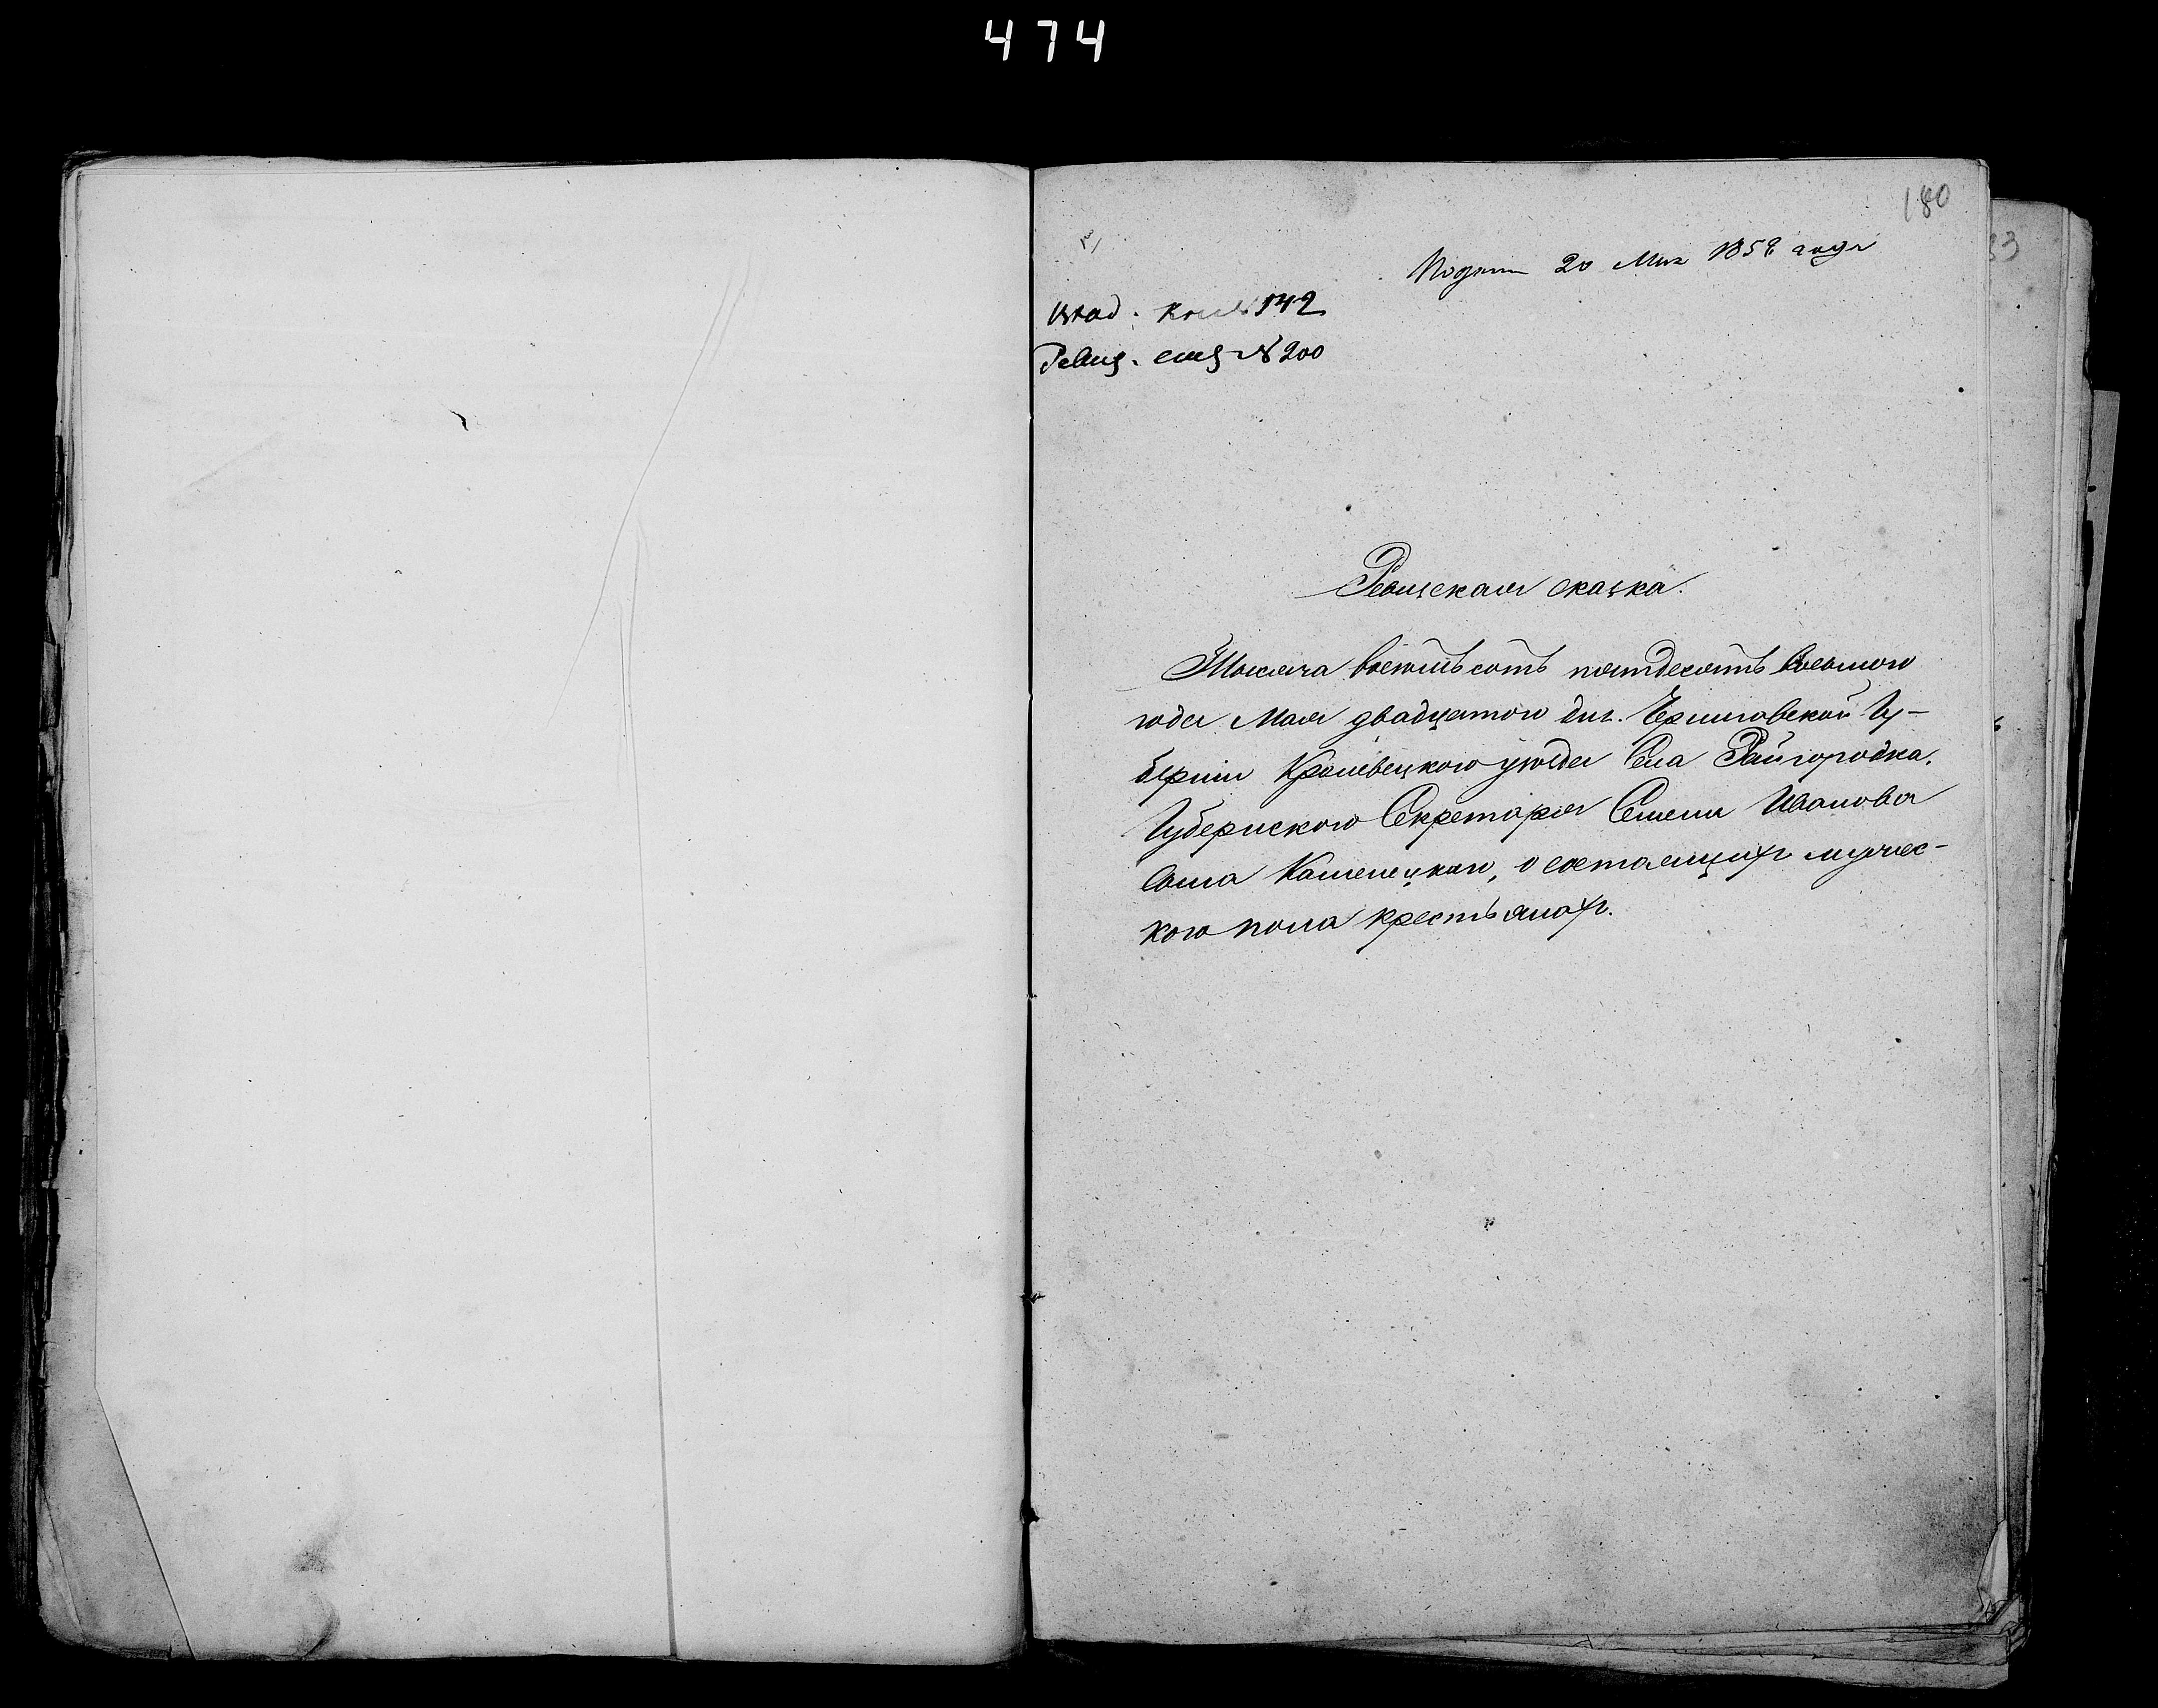 474
180
33
Подана 20 Мая 1858 года
Влад. № 142
Ревиз. сказ № 200
Ревизская сказка.
Тысяча восемьсотъ пятдесятъ восьмого
года Мая двадцатого дня. Черниговской Гу-
берніи Кролевецкого уѣзда Села Райгородка.
Губернского Секретаря Семена Иванова
сына Каменецкого, о состоящихъ мужес-
кого пола крестьянахъ.